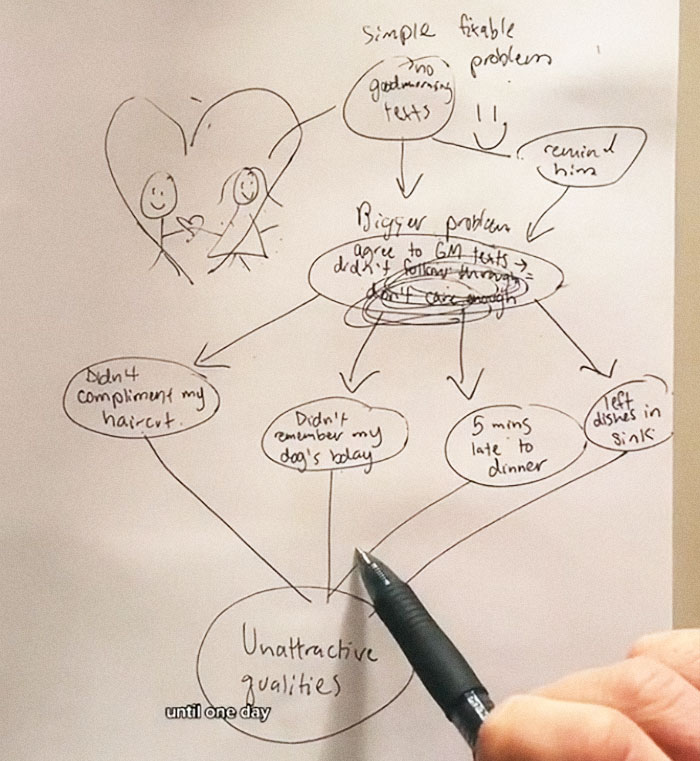 simple fixable
problem
no
goodmorning
texts
remind
him
Bigger problem
agree to GM texts →
didn't follow through =
don't care enough
Didn't
compliment my
haircut.
Didn't
remember my
dog's bday
5 mins
late to
dinner
left
dishes in
sink
Unattractive
qualities
until one day